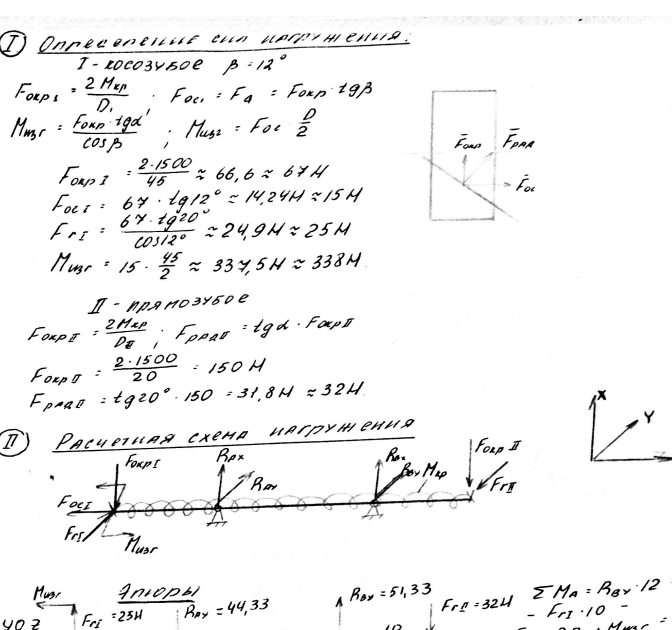 I Определение сил нагружения:
I - косозубое β = 12°
Fокр₁ = 2Mкр / D₁ ; Fос₁ = Fa = Fокр · tgβ
Mизг = Fокр · tgα / cosβ ; Mизг = Fос · D/2
Fокр I = 2·1500 / 45 ≈ 66,6 ≈ 67Н
Fос I = 67 · tg12° ≈ 14,24Н ≈ 15Н
Fr I = 67 · tg20° / cos12° ≈ 24,9Н ≈ 25Н
Mизг = 15 · 45/2 ≈ 337,5Н ≈ 338Н
Fокр Fрад
Fос
II - прямозубое
Fокр II = 2Mкр / DII ; Fрад II = tgα · Fокр II
Fокр II = 2·1500 / 20 = 150Н
Fрад II = tg20° · 150 = 31,8Н ≈ 32Н
II Расчетная схема нагружения
X
Y
Fокр I RAX RBX Fокр II
Fос I RAY RBY Mкр Fr II
Fr I Mизг
Эпюры
Mизг Fr I = 25Н RAY = 44,33 RBY = 51,33 Fr II = 32Н ΣMA = RBY · 12
YOZ - Fr I · 10 -